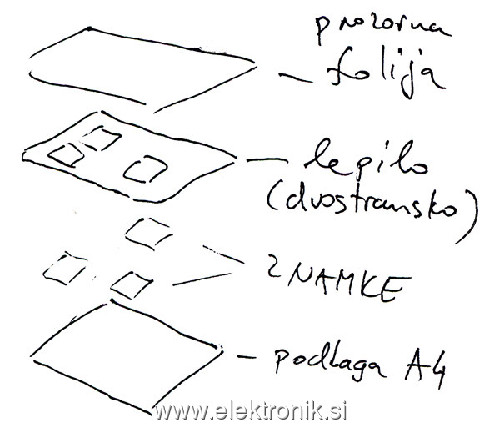 prozorna
folija
lepilo
(dvostransko)
ZNAMKE
podlaga A4
www.elektronik.si